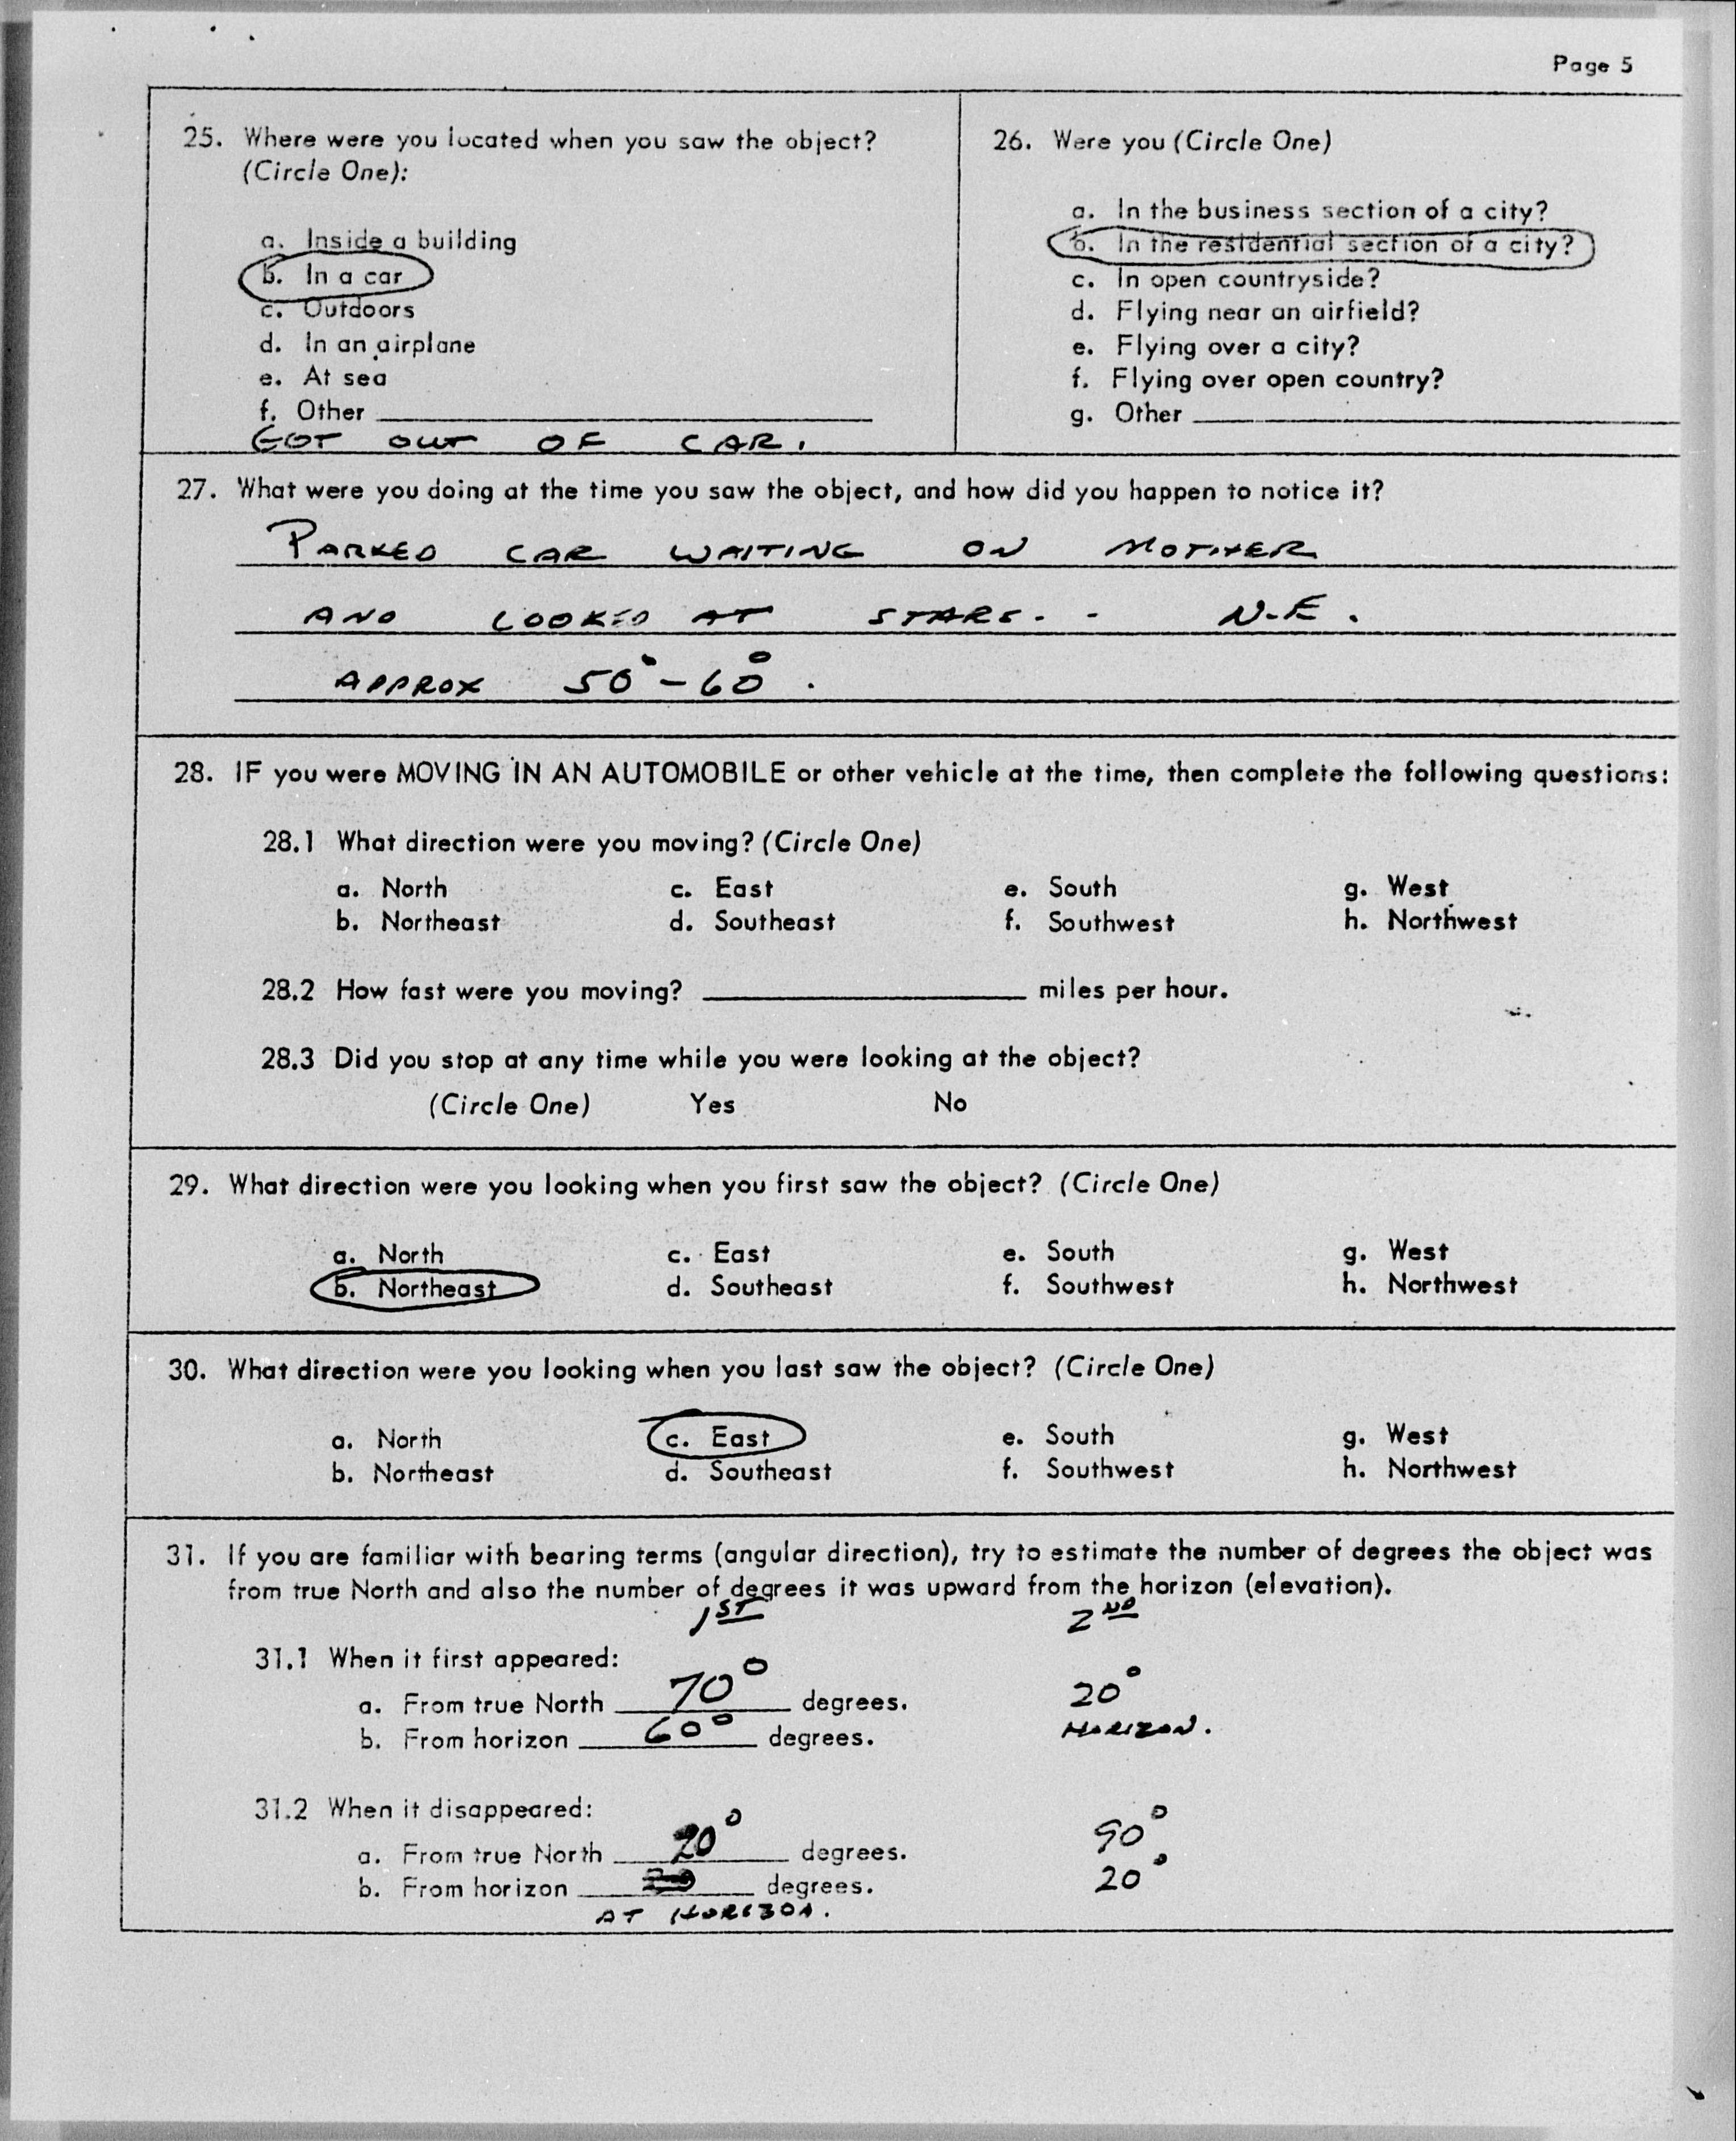 Page 5
25. Where were you located when you saw the object?
(Circle One):
a. Inside a building
b. In a car
c. Outdoors
d. In an airplane
e. At sea
f. Other
GOT OUT OF CAR.
26. Were you (Circle One)
a. In the business section of a city?
b. In the residential section of a city?
c. In open countryside?
d. Flying near an airfield?
e. Flying over a city?
f. Flying over open country?
g. Other
27. What were you doing at the time you saw the object, and how did you happen to notice it?
PARKED CAR WAITING ON MOTHER
AND LOOKED AT STARS. - N.E.
APPROX 50° - 60°.
28. IF you were MOVING IN AN AUTOMOBILE or other vehicle at the time, then complete the following questions:
28.1 What direction were you moving? (Circle One)
a. North c. East e. South g. West
b. Northeast d. Southeast f. Southwest h. Northwest
28.2 How fast were you moving? miles per hour.
28.3 Did you stop at any time while you were looking at the object?
(Circle One) Yes No
29. What direction were you looking when you first saw the object? (Circle One)
a. North c. East e. South g. West
b. Northeast d. Southeast f. Southwest h. Northwest
30. What direction were you looking when you last saw the object? (Circle One)
a. North c. East e. South g. West
b. Northeast d. Southeast f. Southwest h. Northwest
31. If you are familiar with bearing terms (angular direction), try to estimate the number of degrees the object was
from true North and also the number of degrees it was upward from the horizon (elevation).
1ST 2ND
31.1 When it first appeared:
a. From true North 70° degrees. 20°
b. From horizon 60° degrees. HORIZON.
31.2 When it disappeared:
a. From true North 20° degrees. 90°
b. From horizon degrees. 20°
AT HORIZON.